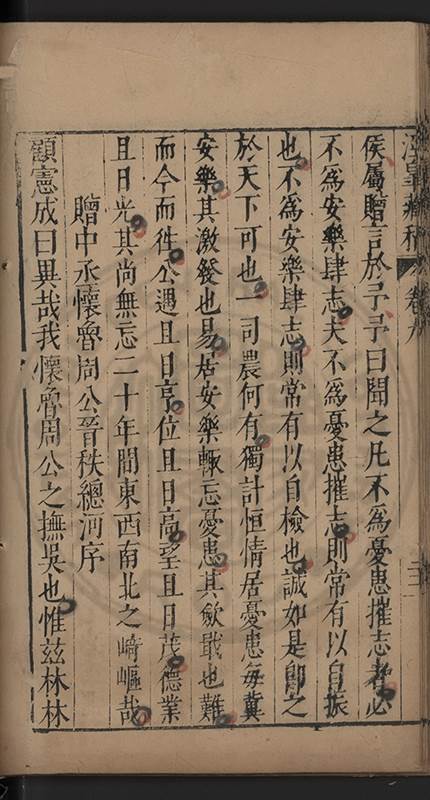 涇臯藏稿 卷九
侯屬贈言於予予曰聞之凡不爲憂患摧志者必
不爲安樂肆志夫不爲憂患摧志則常有以自振
也不爲安樂肆志則常有以自檢也誠如是卽之
於天下可也一司農何有獨計恒情居憂患每冀
安樂其激發也易居安樂輙忘憂患其歛戢也難
而今而徃公遇且日亨位且日高望且日茂德業
且日光其尚無忘二十年間東西南北之﨑嶇哉
贈中丞懷魯周公晉秩總河序
顧憲成曰異哉我懷魯周公之撫吳也惟兹林林